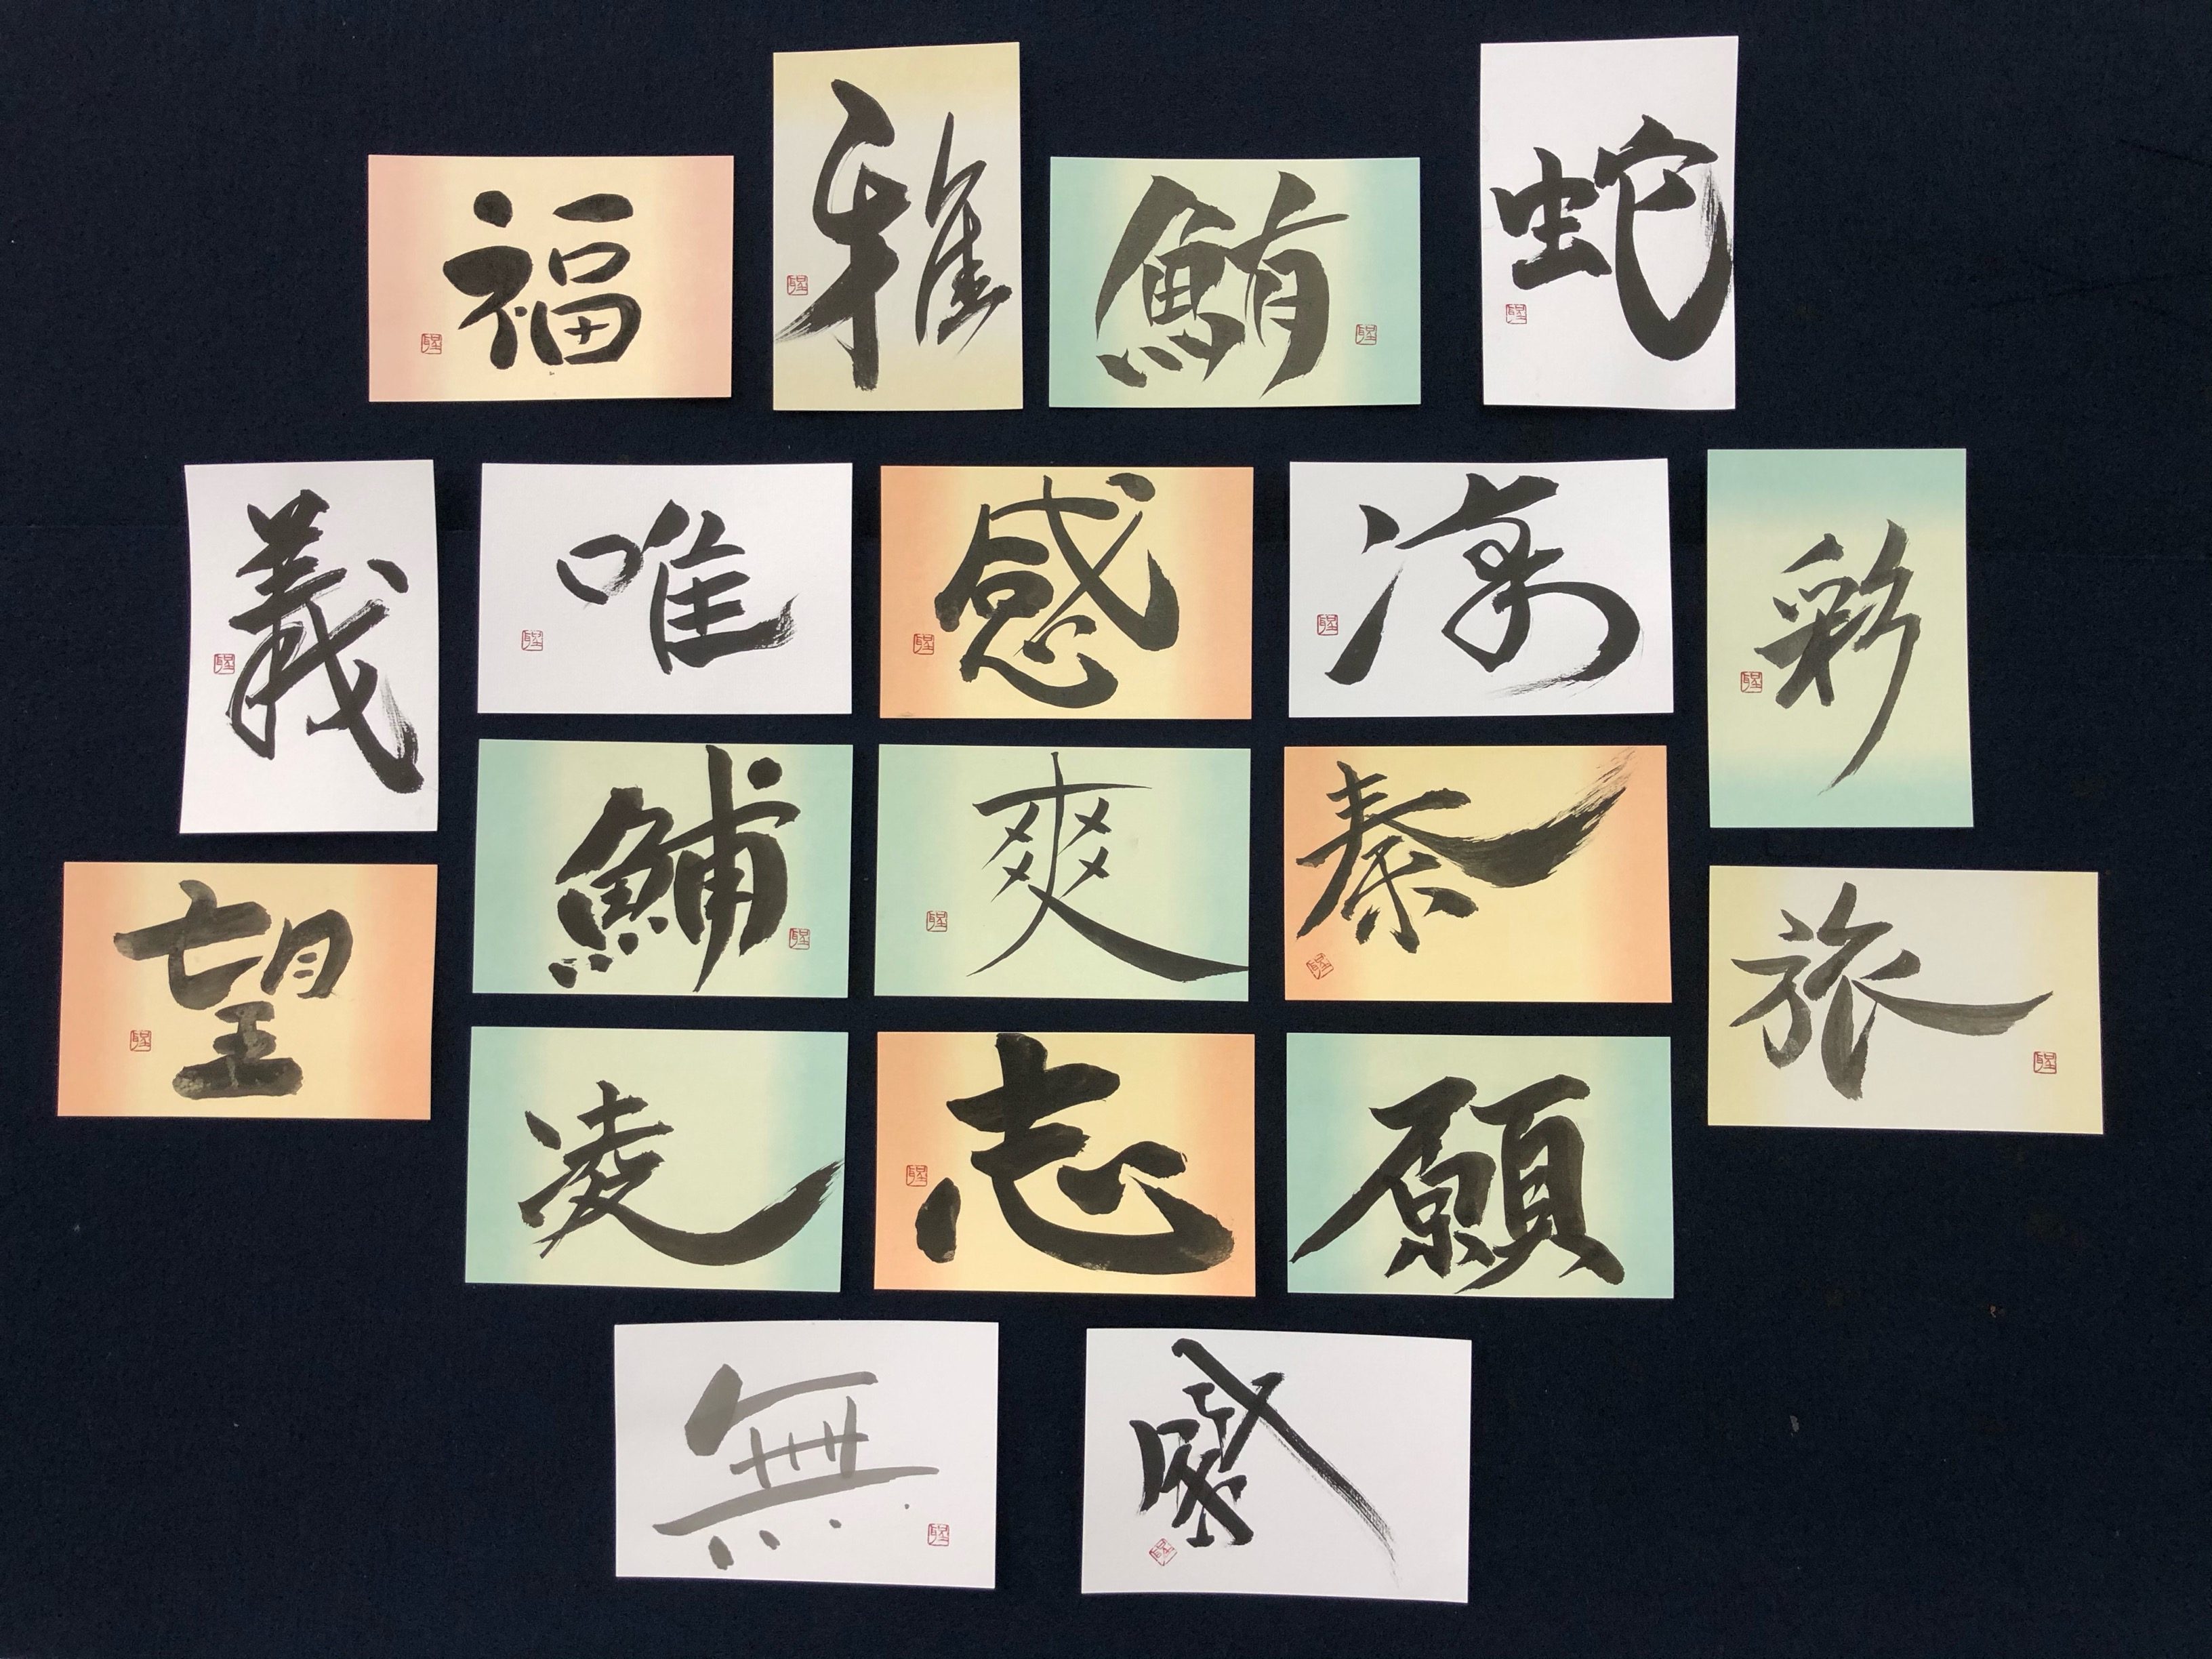 福
雅
鮪
蛇
義
唯
感
彩
鯆
爽
秦
望
旅
凌
志
願
無